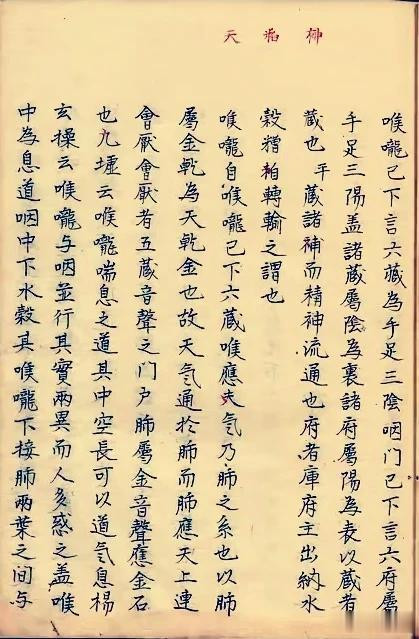 柳 天
喉嚨已下言六藏為手足三陰咽門已下言六府屬
手足三陽盖諸藏屬陰為裏諸府屬陽為表以藏者
藏也平藏諸補而精神流通也府者庫府主出納水
穀糟柏轉輸之謂也
喉嚨自喉嚨已下六藏喉應夫気乃肺之系也以肺
屬金乾為天乾金也故天気通於肺而肺應天上連
會厭會厭者五藏音聲之门户肺屬金音聲應金石
也九墟云喉嚨喘息之道其中空長可以道気息楊
玄操云喉嚨与咽並行其實兩異而人多惑之盖喉
中為息道咽中下水穀其喉嚨下接肺兩葉之间与